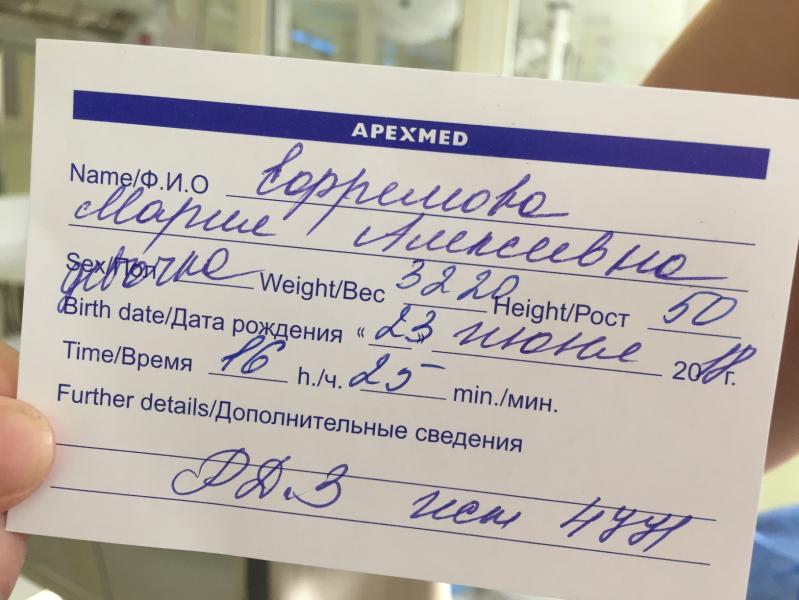 APEXMED
Name/Ф.И.О Ефремова
Мария Алексеевна
Sex/Пол девочка Weight/Вес 3220 Height/Рост 50
Birth date/Дата рождения «23» июня 2018 г.
Time/Время 16 h./ч. 25 min./мин.
Further details/Дополнительные сведения
РДЗ